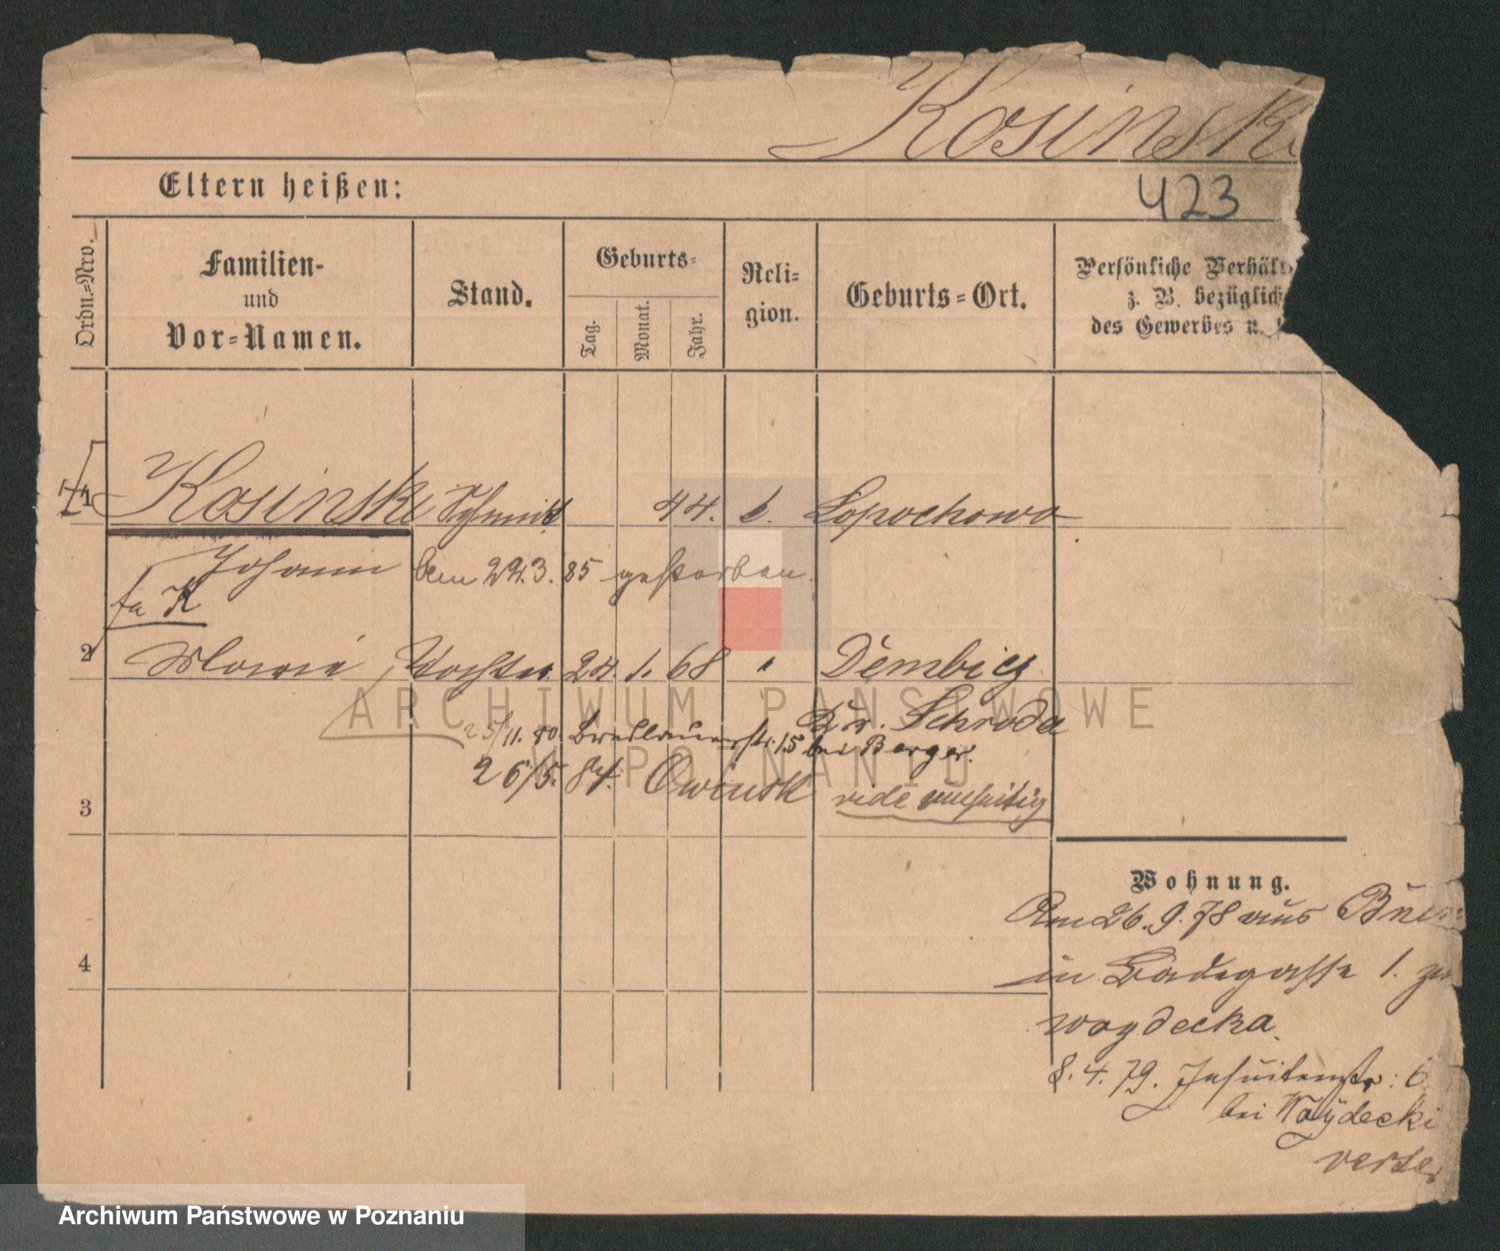 Kosinski
423
Eltern heißen:
Ordn.-Nro.
Familien-
und
Vor-Namen.
Stand.
Geburts-
Tag.
Monat.
Jahr.
Reli-
gion.
Geburts-Ort.
Persönliche Verhält
z. B. bezüglich
des Gewerbes u.
1 Kosinski Schmidt 44. k. Lopochowo
Johann
den 22.3.85 gestorben.
fa K
2 Marie Tochter 24. 1. 68 " Dembicz
Kr. Schroda
25/11. 80. Breslauerstr. 15 bei Berger.
26/5. 84. Owinsk vide umseitig
3
4
Wohnung.
Am 26.9.78 aus
in Badegasse 1.
Woydecka.
8. 4. 79. Jesuitenstr: 6
bei Woydecki
ARCHIWUM PAŃSTWOWE
W POZNANIU
Archiwum Państwowe w Poznaniu